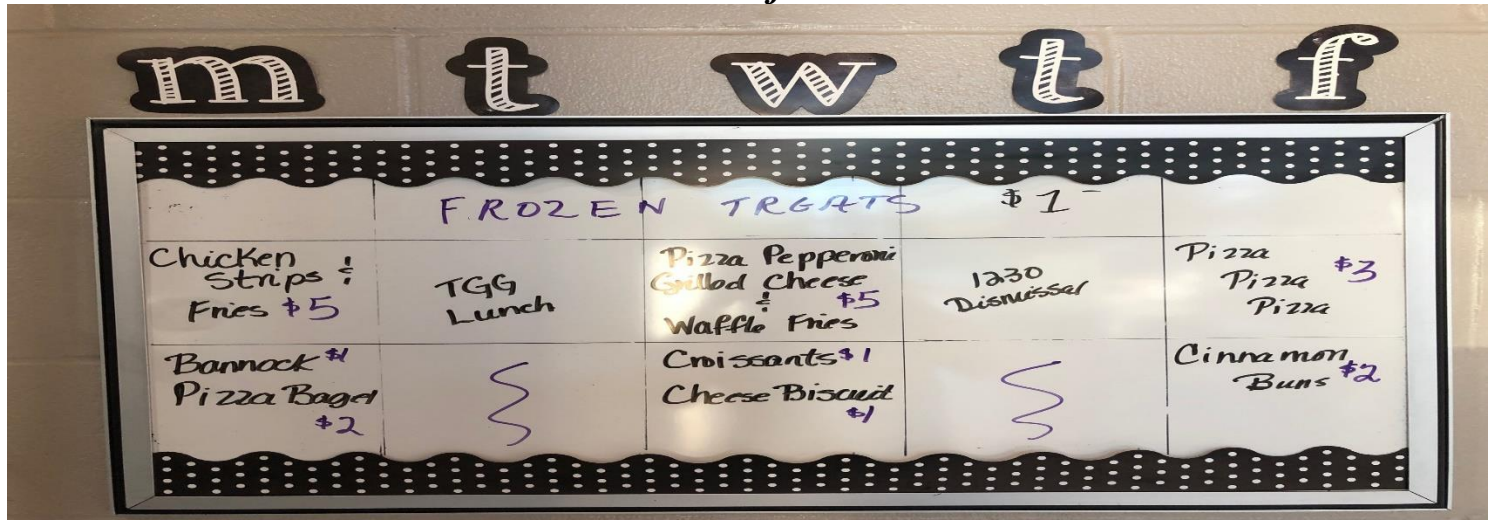 m t w t f
FROZEN TREATS $1-
Chicken
Strips &
Fries $5
TGG
Lunch
Pizza Pepperoni
Grilled Cheese
& $5
Waffle Fries
1230
Dismissal
Pizza
Pizza $3
Pizza
Bannock $1
Pizza Bagel
$2
Croissants $1
Cheese Biscuit
$1
Cinnamon
Buns $2